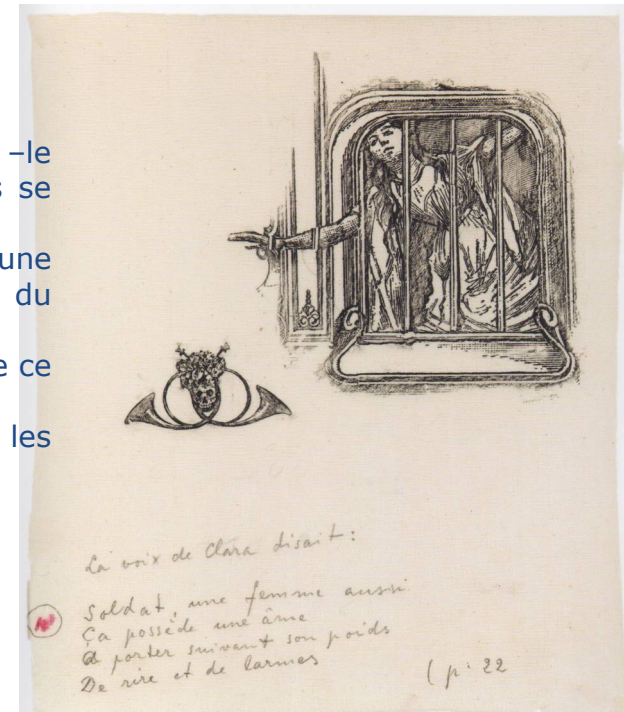 –le
s se
une
du
e ce
les
La voix de Clara disait :
Soldat, une femme aussi
Ça possède une âme
à porter suivant son poids
De rire et de larmes
( p. 22